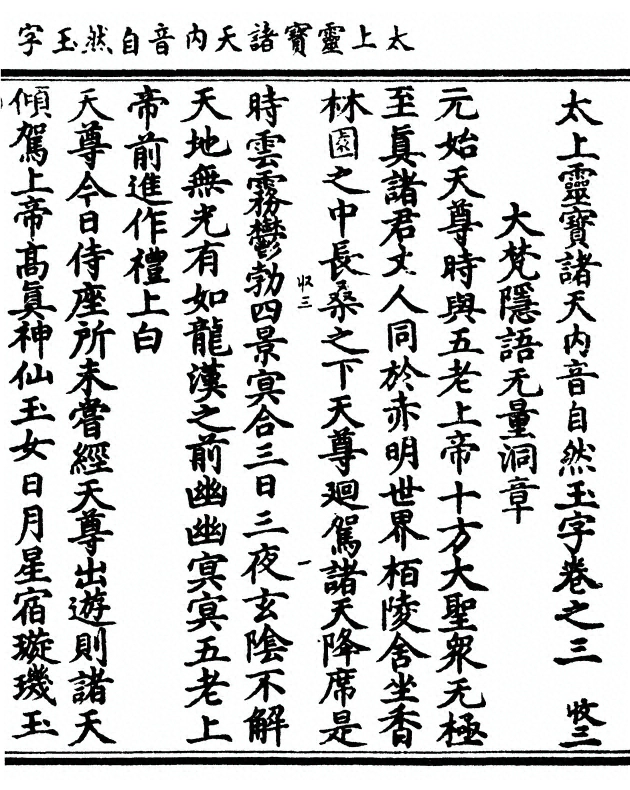 太上靈寶諸天內音自然玉字
太上靈寶諸天內音自然玉字卷之三 收三
大梵隱語无量洞章
元始天尊時與五老上帝十方大聖眾无極
至眞諸君丈人同於赤明世界栢陵舍坐香
林園之中長桑之下天尊廻駕諸天降席是
收三 一
時雲霧鬱勃四景㝠合三日三夜玄陰不解
天地無光有如龍漢之前幽幽㝠㝠五老上
帝前進作禮上白
天尊今日侍座所未嘗經天尊出遊則諸天
傾駕上帝髙眞神仙玉女日月星宿璇璣玉